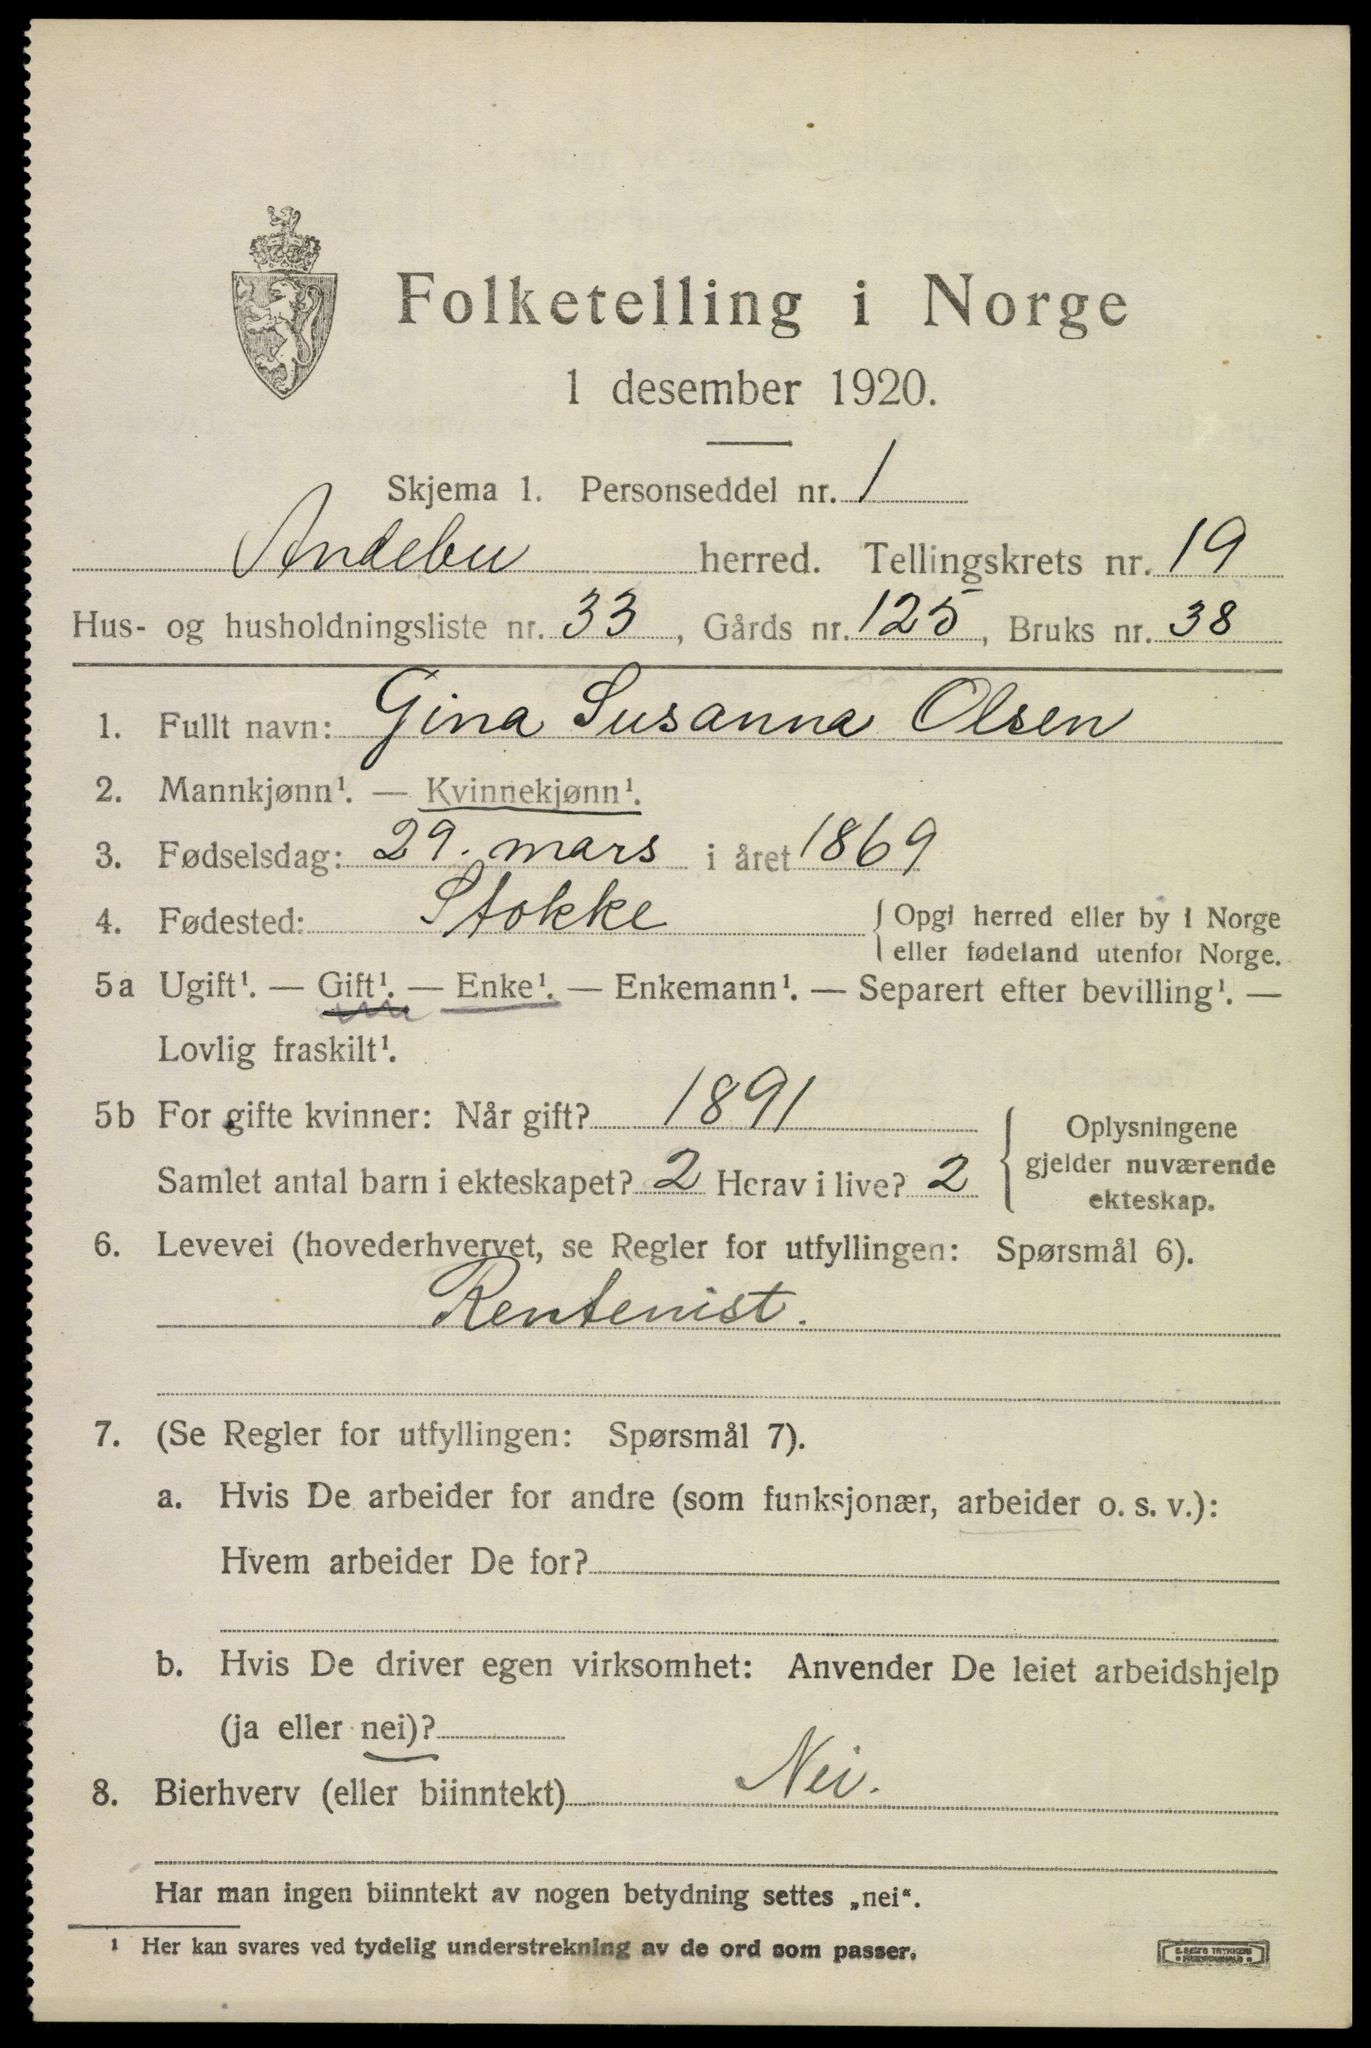 Folketelling i Norge
1 desember 1920.
Skjema 1. Personseddel nr. 1
Andebu herred. Tellingskrets nr. 19
Hus- og husholdningsliste nr. 33, Gårds nr. 125, Bruks nr. 38
1. Fullt navn: Gina Susanna Olsen
2. Mannkjønn¹. — Kvinnekjønn¹.
3. Fødselsdag: 29. mars i året 1869
4. Fødested: Stokke { Opgi herred eller by i Norge
eller fødeland utenfor Norge.
5a Ugift¹. — Gift¹. — Enke¹. — Enkemann¹. — Separert efter bevilling¹. —
Lovlig fraskilt¹.
5b For gifte kvinner: Når gift? 1891
Samlet antal barn i ekteskapet? 2 Herav i live? 2
{ Oplysningene
gjelder nuværende
ekteskap.
6. Levevei (hovederhvervet, se Regler for utfyllingen: Spørsmål 6).
Rentenist.
7. (Se Regler for utfyllingen: Spørsmål 7).
a. Hvis De arbeider for andre (som funksjonær, arbeider o. s. v.):
Hvem arbeider De for?
b. Hvis De driver egen virksomhet: Anvender De leiet arbeidshjelp
(ja eller nei)?
8. Bierhverv (eller biinntekt) Nei.
Har man ingen biinntekt av nogen betydning settes „nei“.
¹ Her kan svares ved tydelig understrekning av de ord som passer.